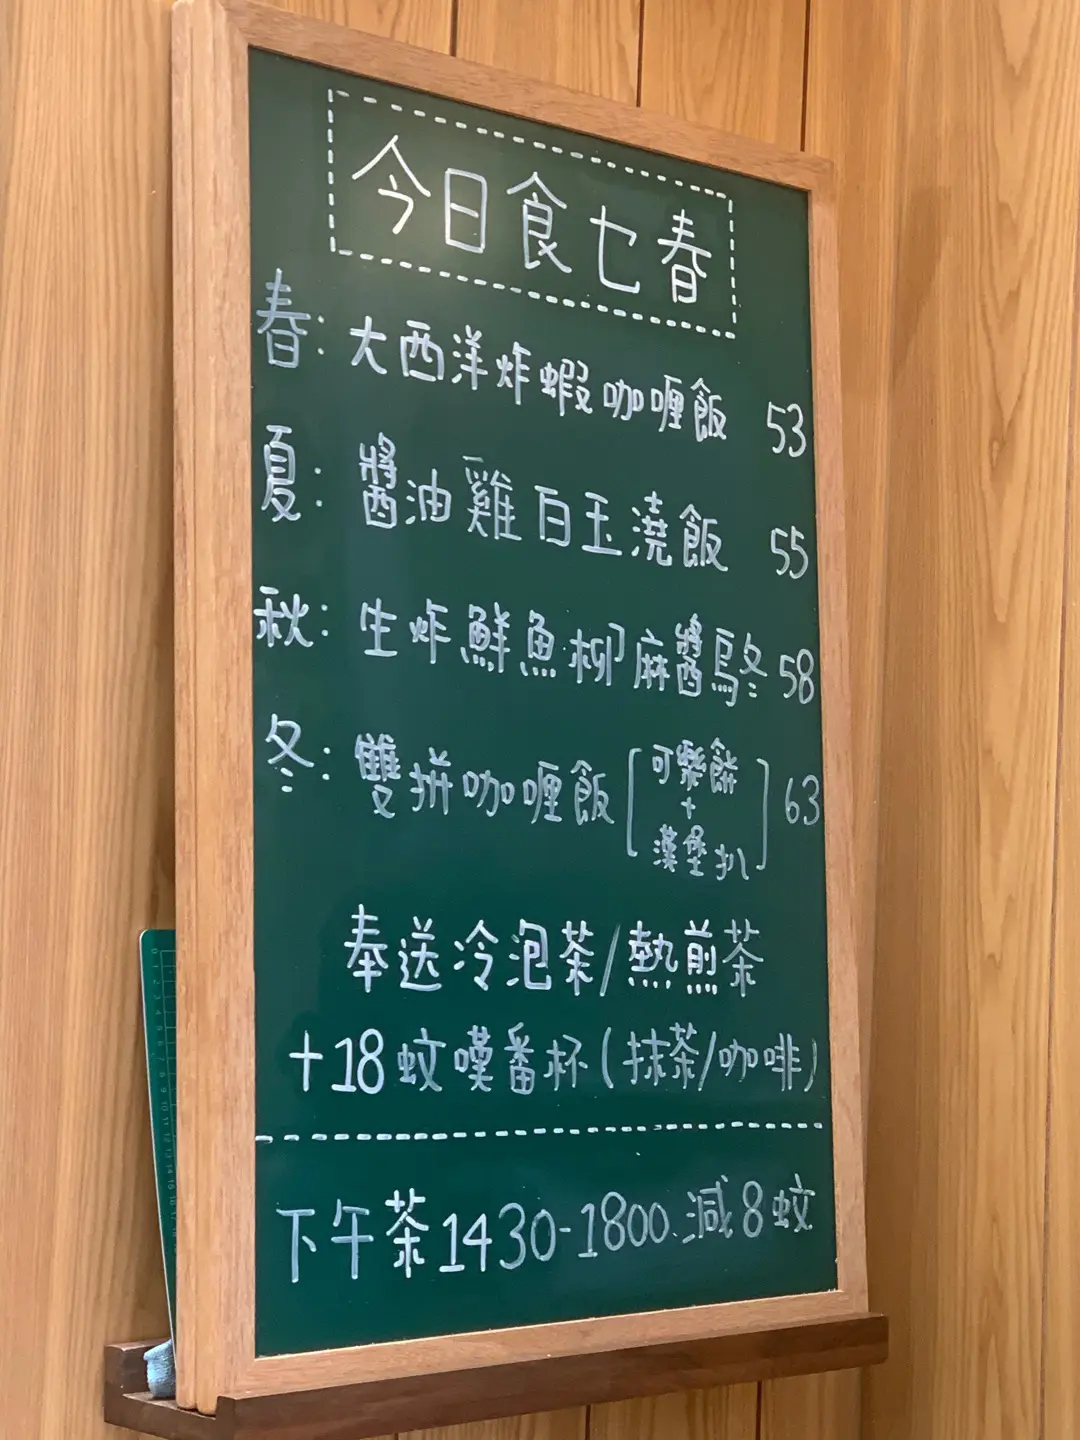 今日食乜春
春: 大西洋炸蝦咖喱飯 53
夏: 醬油雞白玉澆飯 55
秋: 生炸鮮魚柳麻醬烏冬 58
冬: 雙拼咖喱飯[可樂餅+漢堡扒] 63
奉送冷泡茶/熱煎茶
+18蚊嘆番杯(抹茶/咖啡)
下午茶1430-1800.減8蚊